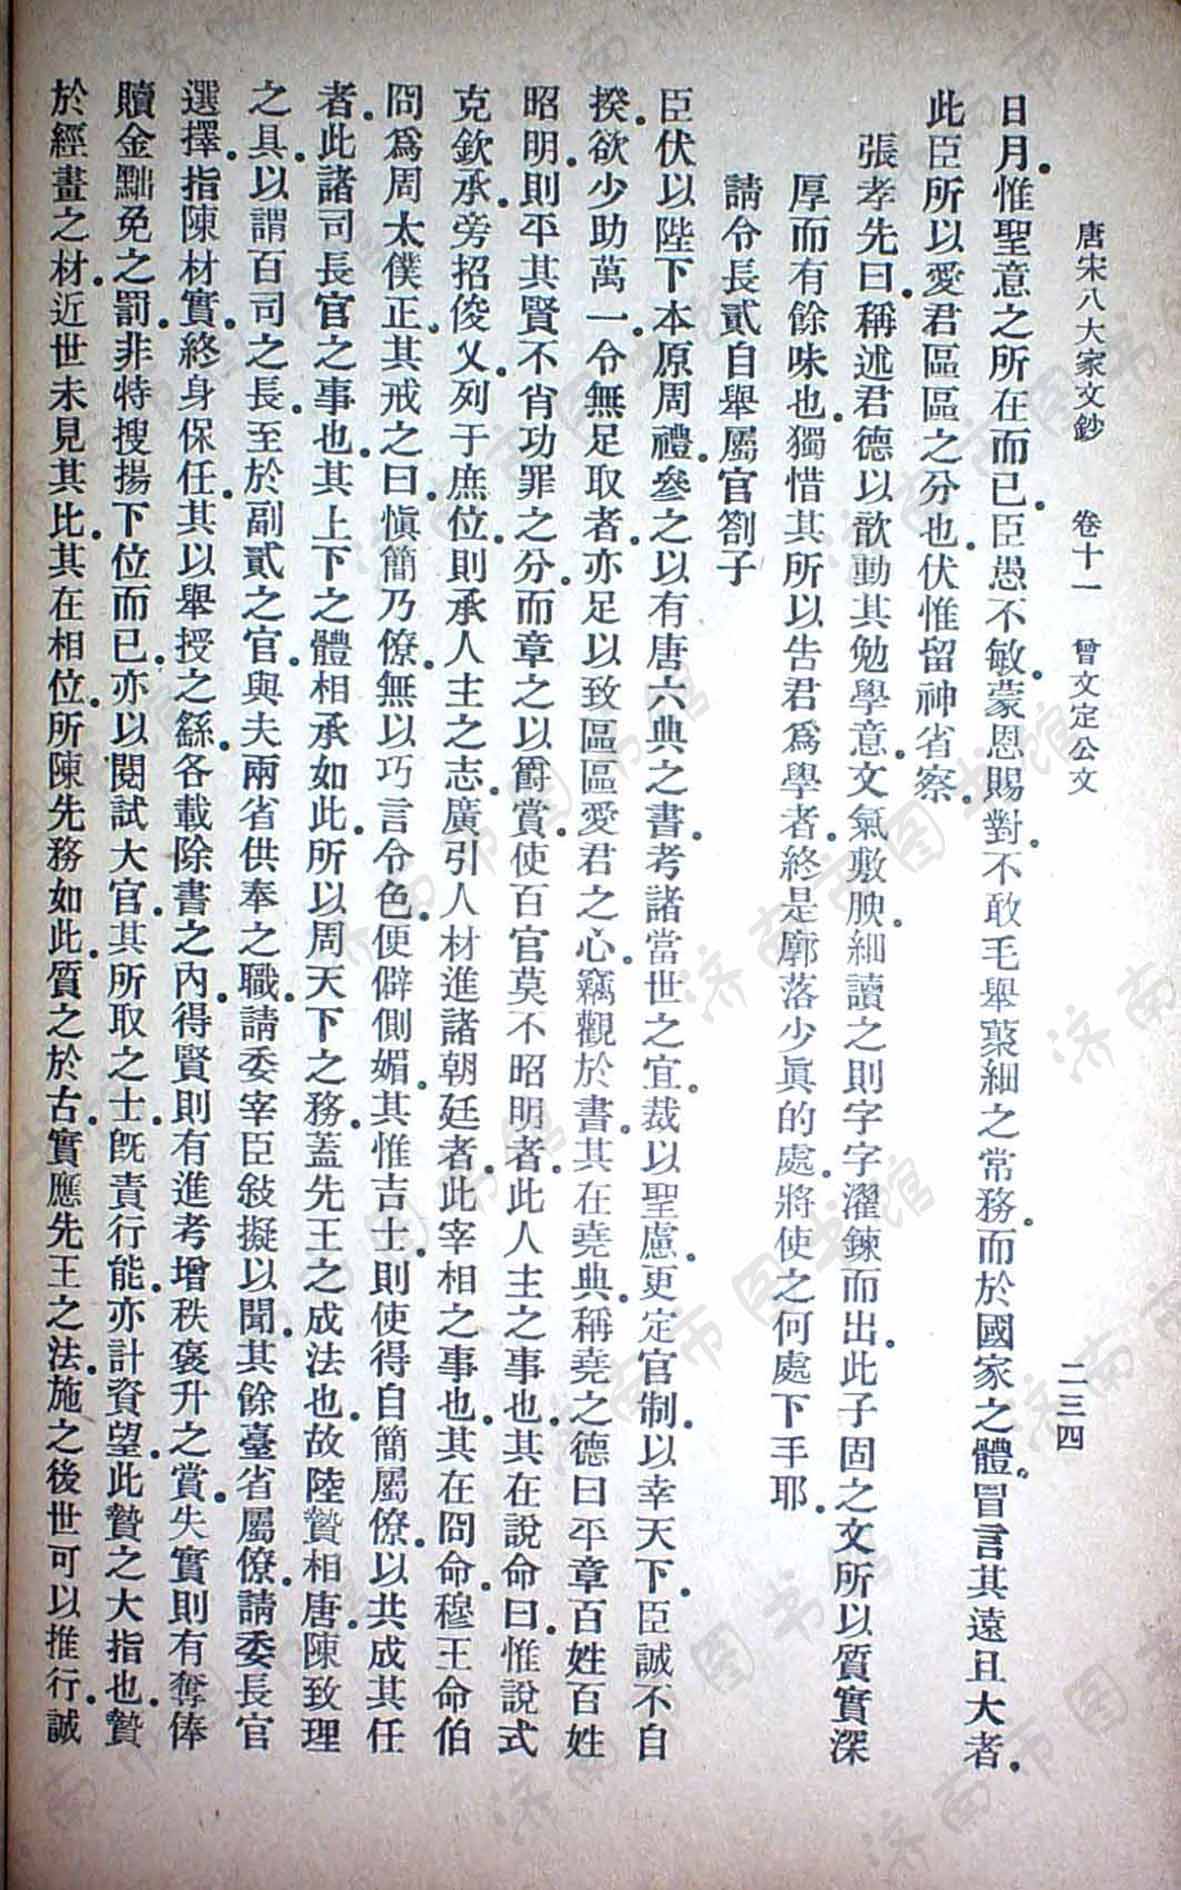 唐宋八大家文鈔　卷十一　曾文定公文　二三四
日月。惟聖意之所在而已。臣愚不敏。蒙恩賜對。不敢毛舉藂細之常務。而於國家之體。冒言其遠且大者。
此臣所以愛君區區之分也。伏惟留神省察。
張孝先曰。稱述君德以歆動其勉學意。文氣敷腴。細讀之則字字濯鍊而出。此子固之文所以質實深
厚而有餘味也。獨惜其所以告君爲學者。終是廓落少眞的處。將使之何處下手耶。
請令長貳自舉屬官劄子
臣伏以陛下本原周禮。參之以有唐六典之書。考諸當世之宜。裁以聖慮。更定官制。以幸天下。臣誠不自
揆。欲少助萬一。令無足取者。亦足以致區區愛君之心。竊觀於書。其在堯典。稱堯之德曰平章百姓百姓
昭明。則平其賢不肖功罪之分。而章之以爵賞。使百官莫不昭明者。此人主之事也。其在說命曰。惟說式
克欽承。旁招俊乂。列于庶位。則承人主之志。廣引人材進諸朝廷者。此宰相之事也。其在冏命。穆王命伯
冏爲周太僕正。其戒之曰。愼簡乃僚。無以巧言令色。便僻側媚。其惟吉士。則使得自簡屬僚。以共成其任
者。此諸司長官之事也。其上下之體相承如此。所以周天下之務。蓋先王之成法也。故陸贄相唐。陳致理
之具。以謂百司之長。至於副貳之官。與夫兩省供奉之職。請委宰臣敍擬以聞。其餘臺省屬僚。請委長官
選擇。指陳材實。終身保任。其以舉授之繇。各載除書之內。得賢則有進考增秩褒升之賞。失實則有奪俸
贖金黜免之罰。非特搜揚下位而已。亦以閱試大官。其所取之士。旣責行能。亦計資望。此贄之大指也。贄
於經畫之材。近世未見其比。其在相位。所陳先務如此。質之於古。實應先王之法。施之後世可以推行。誠